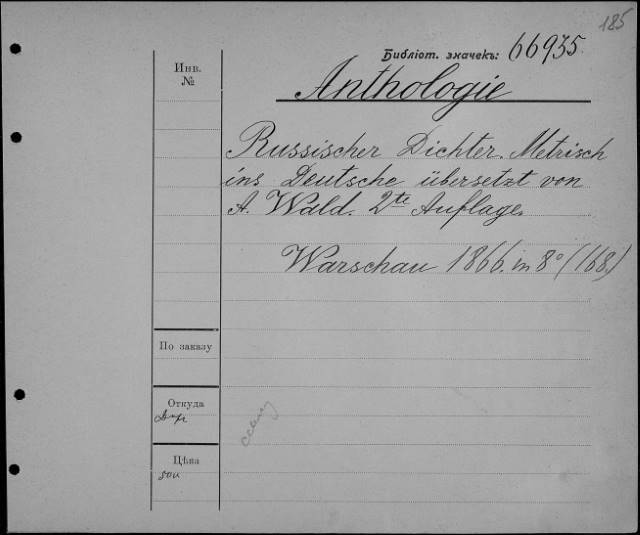 185
Библіот. значекъ: 66935.
Инв.
№
Anthologie
Russischer Dichter. Metrisch
ins Deutsche übersetzt von
A. Wald. 2te Auflage.
Warschau 1866. in 8° (168.)
По заказу
Откуда
Цѣна